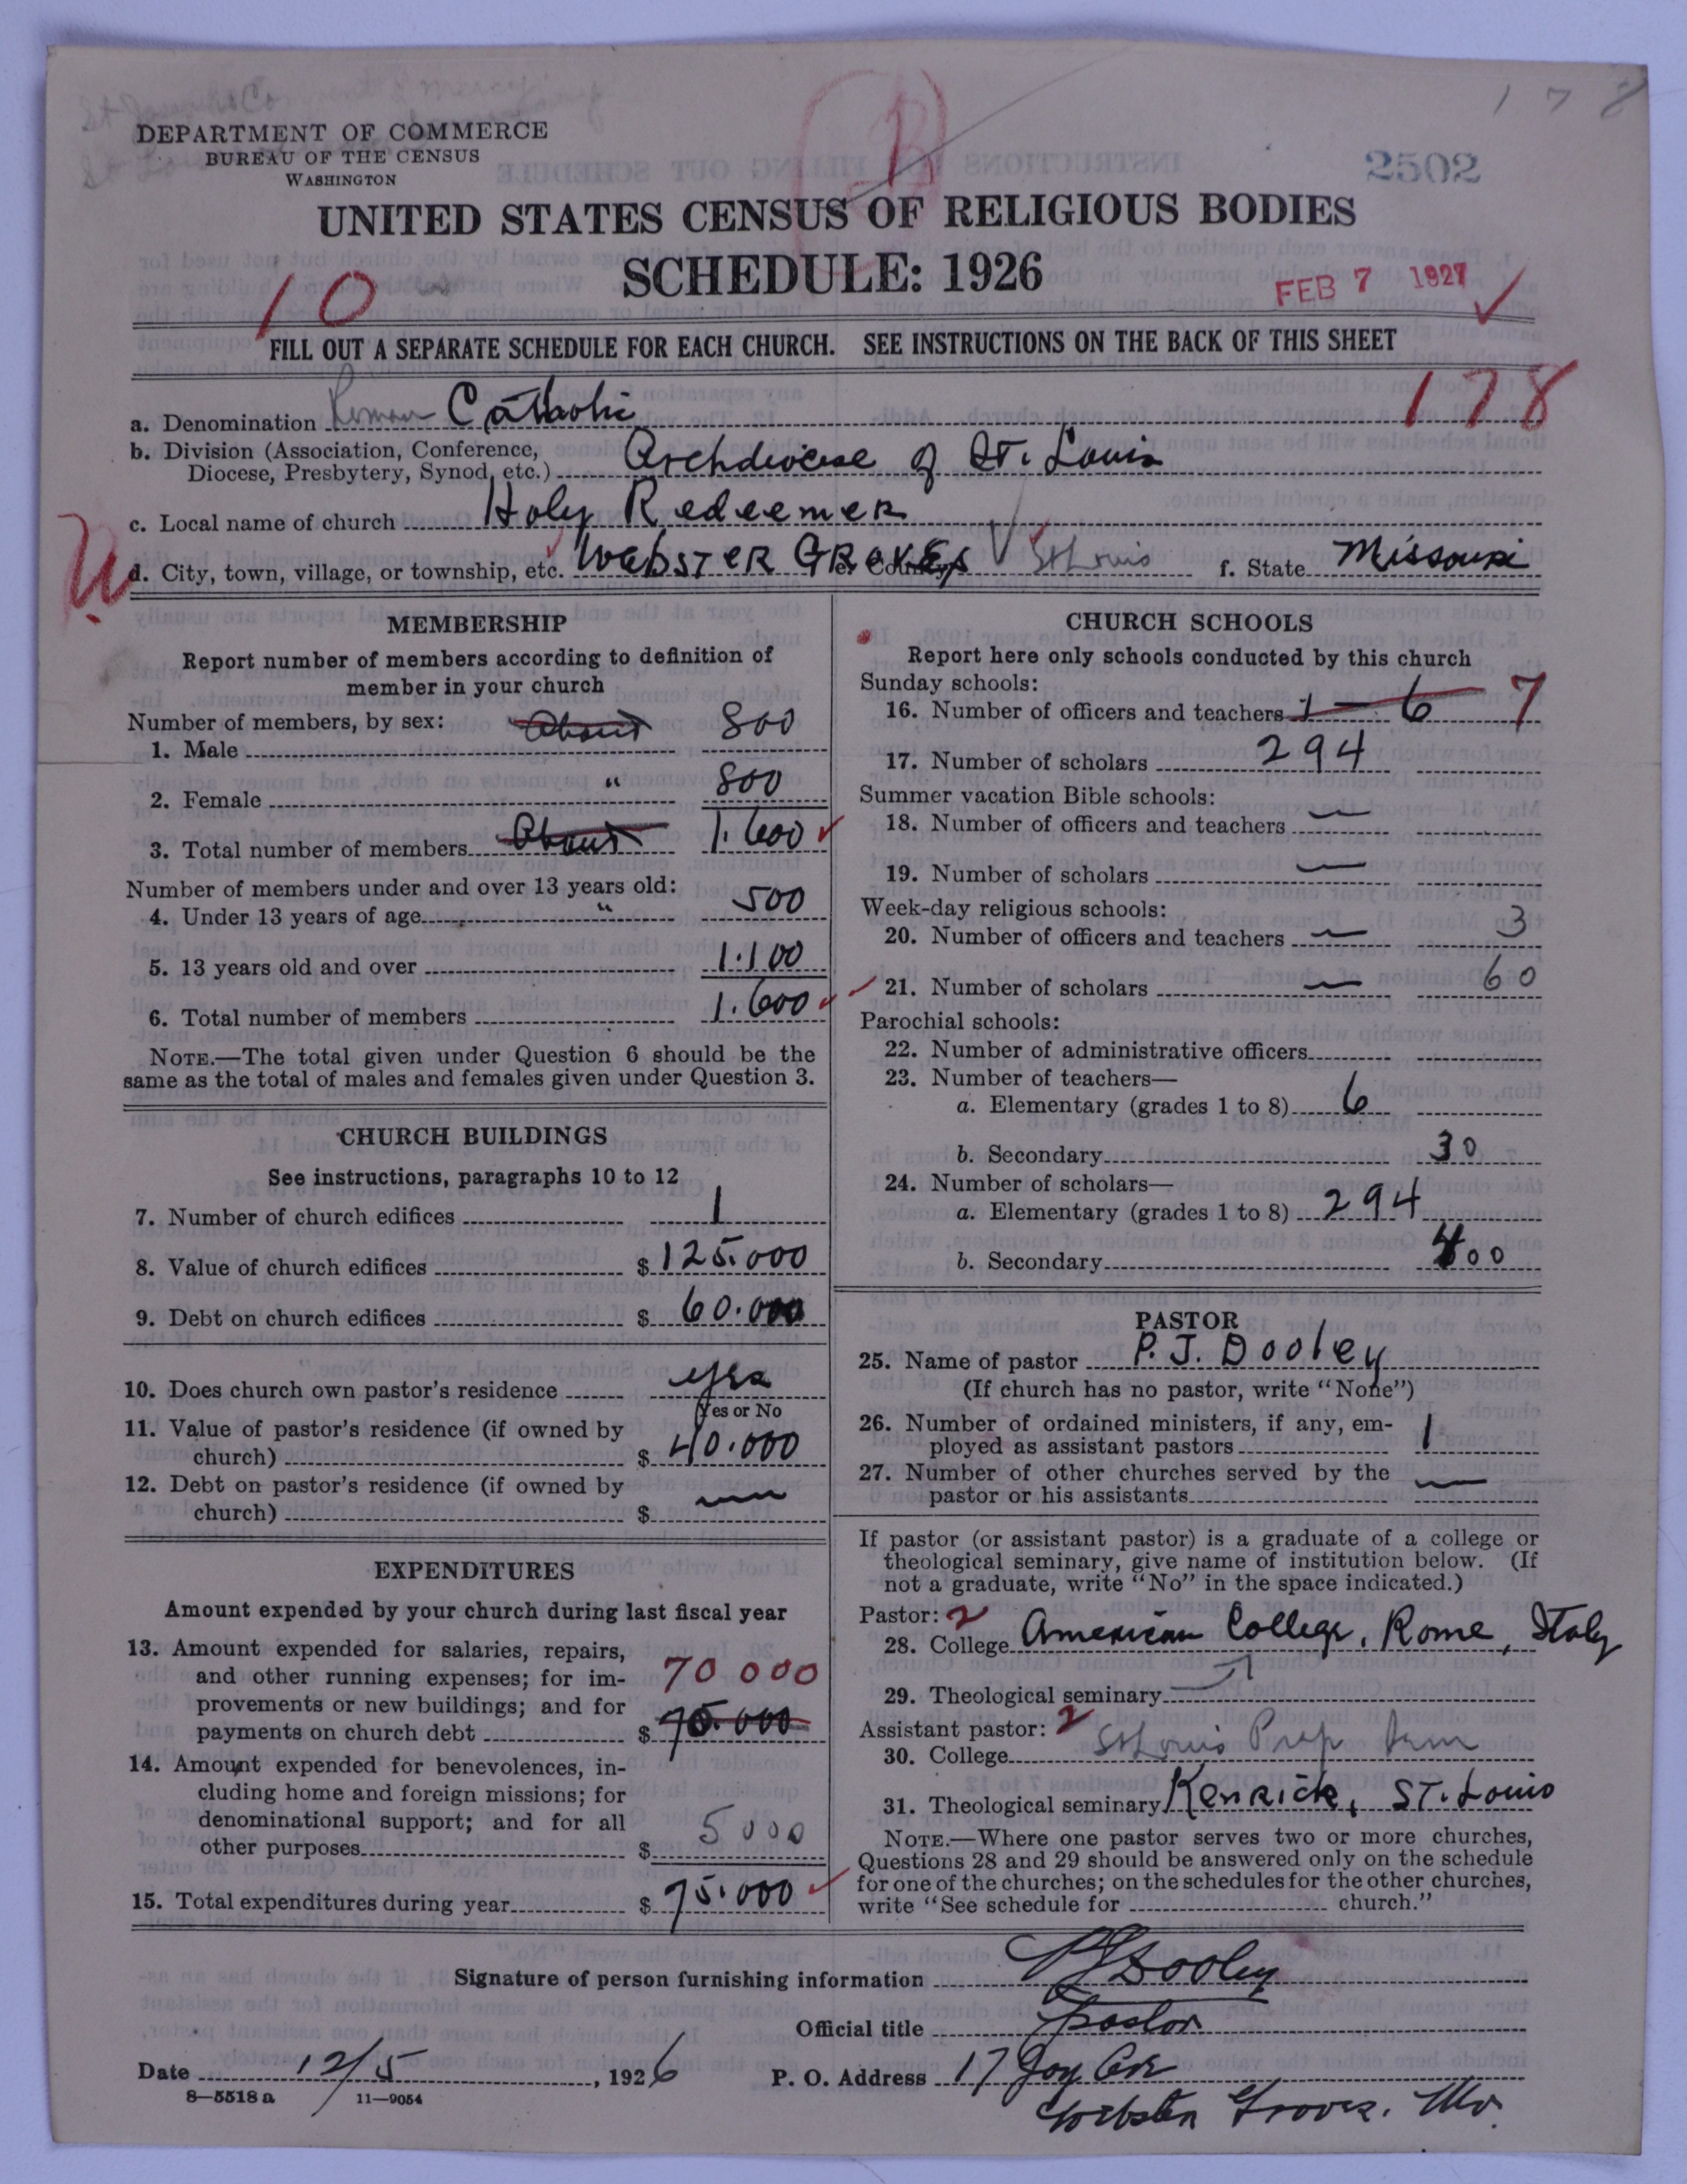 178
DEPARTMENT OF COMMERCE
BUREAU OF THE CENSUS
WASHINGTON
B
2502
UNITED STATES CENSUS OF RELIGIOUS BODIES
SCHEDULE: 1926
10
FEB 7 1927
FILL OUT A SEPARATE SCHEDULE FOR EACH CHURCH. SEE INSTRUCTIONS ON THE BACK OF THIS SHEET
178
a. Denomination Roman Catholic
b. Division (Association, Conference, Diocese, Presbytery, Synod, etc.) Archdiocese of St. Louis
c. Local name of church Holy Redeemer
d. City, town, village, or township, etc. Webster Groves e. County St Louis f. State Missouri
MEMBERSHIP
Report number of members according to definition of
member in your church
Number of members, by sex:
1. Male About 800
2. Female " 800
3. Total number of members About 1.600
Number of members under and over 13 years old:
4. Under 13 years of age " 500
5. 13 years old and over 1.100
6. Total number of members 1.600
NOTE.—The total given under Question 6 should be the
same as the total of males and females given under Question 3.
CHURCH BUILDINGS
See instructions, paragraphs 10 to 12
7. Number of church edifices 1
8. Value of church edifices $ 125.000
9. Debt on church edifices $ 60.000
10. Does church own pastor's residence yes
Yes or No
11. Value of pastor's residence (if owned by
church) $ 40.000
12. Debt on pastor's residence (if owned by
church) $ —
EXPENDITURES
Amount expended by your church during last fiscal year
13. Amount expended for salaries, repairs,
and other running expenses; for im-
provements or new buildings; and for
70 000
payments on church debt $ 75.000
14. Amount expended for benevolences, in-
cluding home and foreign missions; for
denominational support; and for all
other purposes $ 5000
15. Total expenditures during year $ 75.000
CHURCH SCHOOLS
Report here only schools conducted by this church
Sunday schools:
16. Number of officers and teachers 1 – 6 7
17. Number of scholars 294
Summer vacation Bible schools:
18. Number of officers and teachers —
19. Number of scholars —
Week-day religious schools:
20. Number of officers and teachers — 3
21. Number of scholars — 60
Parochial schools:
22. Number of administrative officers
23. Number of teachers—
a. Elementary (grades 1 to 8) 6
b. Secondary 30
24. Number of scholars—
a. Elementary (grades 1 to 8) 294
b. Secondary 400
PASTOR
25. Name of pastor P. J. Dooley
(If church has no pastor, write "None")
26. Number of ordained ministers, if any, em-
ployed as assistant pastors 1
27. Number of other churches served by the
pastor or his assistants —
If pastor (or assistant pastor) is a graduate of a college or
theological seminary, give name of institution below. (If
not a graduate, write "No" in the space indicated.)
Pastor: 2
28. College American College, Rome, Italy
29. Theological seminary
Assistant pastor: 2
30. College St Louis Prep Sem
31. Theological seminary Kenrick, St. Louis
NOTE.—Where one pastor serves two or more churches,
Questions 28 and 29 should be answered only on the schedule
for one of the churches; on the schedules for the other churches,
write "See schedule for church."
Signature of person furnishing information P J Dooley
Official title Pastor
Date 12/5, 1926 P. O. Address 17 Joy Ave
8—5518 a 11—9054
Webster Groves. Mo.